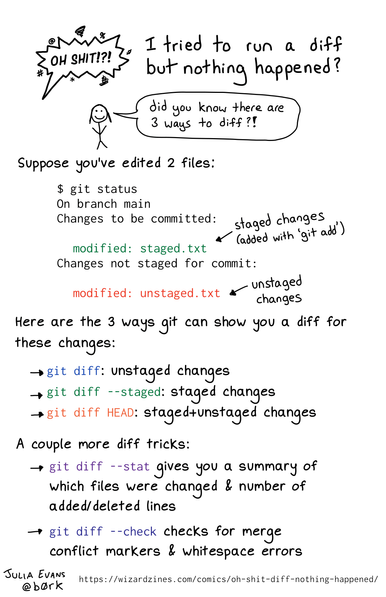 OH SHIT!?!
I tried to run a diff
but nothing happened?
did you know there are
3 ways to diff?!
Suppose you've edited 2 files:
$ git status
On branch main
Changes to be committed:
staged changes
(added with 'git add')
modified: staged.txt
Changes not staged for commit:
modified: unstaged.txt
unstaged
changes
Here are the 3 ways git can show you a diff for
these changes:
→ git diff: unstaged changes
→ git diff --staged: staged changes
→ git diff HEAD: staged+unstaged changes
A couple more diff tricks:
→ git diff --stat gives you a summary of
which files were changed & number of
added/deleted lines
→ git diff --check checks for merge
conflict markers & whitespace errors
JULIA EVANS
@b0rk
https://wizardzines.com/comics/oh-shit-diff-nothing-happened/